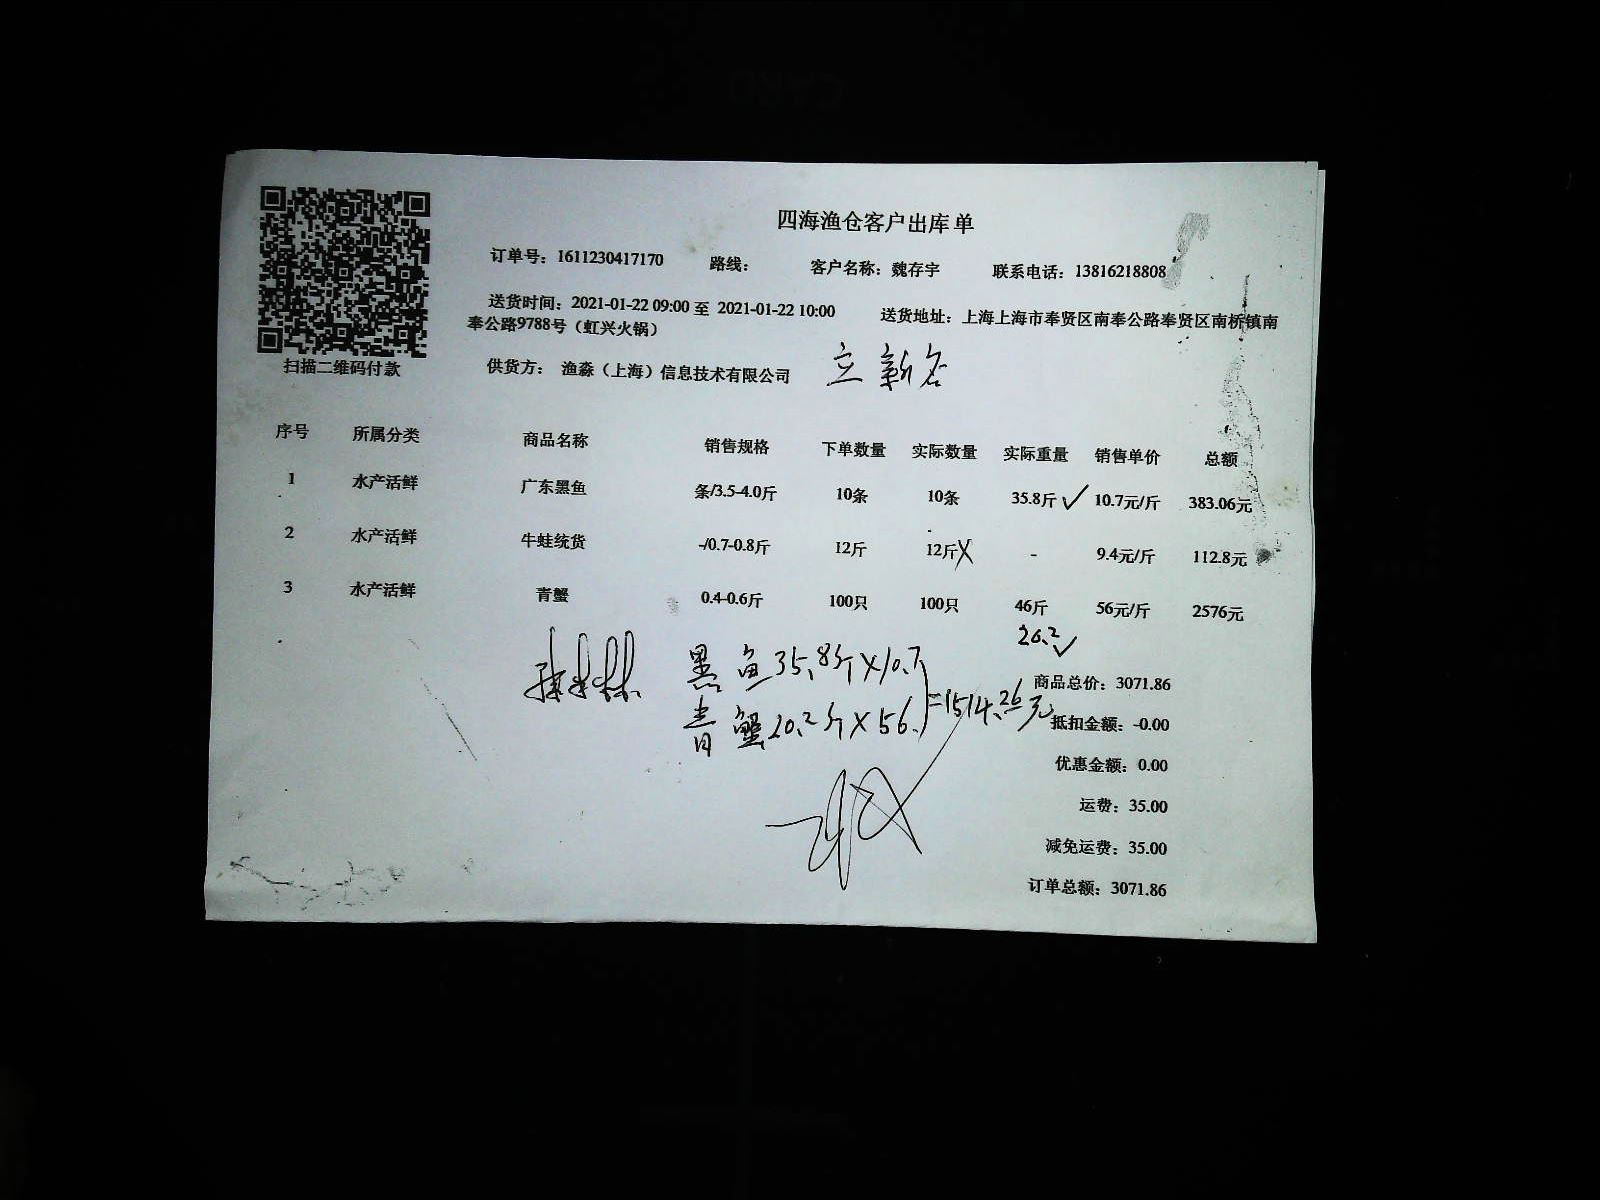 四海渔仓客户出库单
订单号：1611230417170 路线： 客户名称：魏存宇 联系电话：13816218808
送货时间：2021-01-22 09:00 至 2021-01-22 10:00 送货地址：上海上海市奉贤区南奉公路奉贤区南桥镇南
奉公路9788号（虹兴火锅）
扫描二维码付款
供货方：渔淼（上海）信息技术有限公司 立新
序号 所属分类 商品名称 销售规格 下单数量 实际数量 实际重量 销售单价 总额
1 水产活鲜 广东黑鱼 条/3.5-4.0斤 10条 10条 35.8斤✓ 10.7元/斤 383.06元
2 水产活鲜 牛蛙统货 -/0.7-0.8斤 12斤 12斤X - 9.4元/斤 112.8元
3 水产活鲜 青蟹 0.4-0.6斤 100只 100只 46斤 56元/斤 2576元
20.2✓
黑鱼35.8斤X10.7
青蟹20.2斤X56.
=1514.26元
商品总价：3071.86
抵扣金额：-0.00
优惠金额：0.00
运费：35.00
减免运费：35.00
订单总额：3071.86